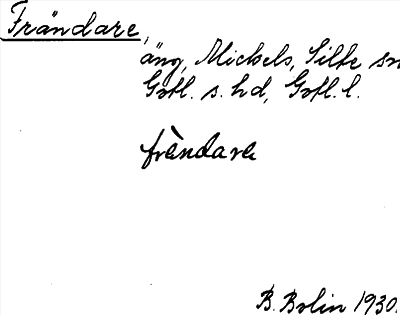 Frändare,
äng, Mickels, Silte sn
Gotl. s. hd, Gotl. l.
frändara
B. Bolin 1930.